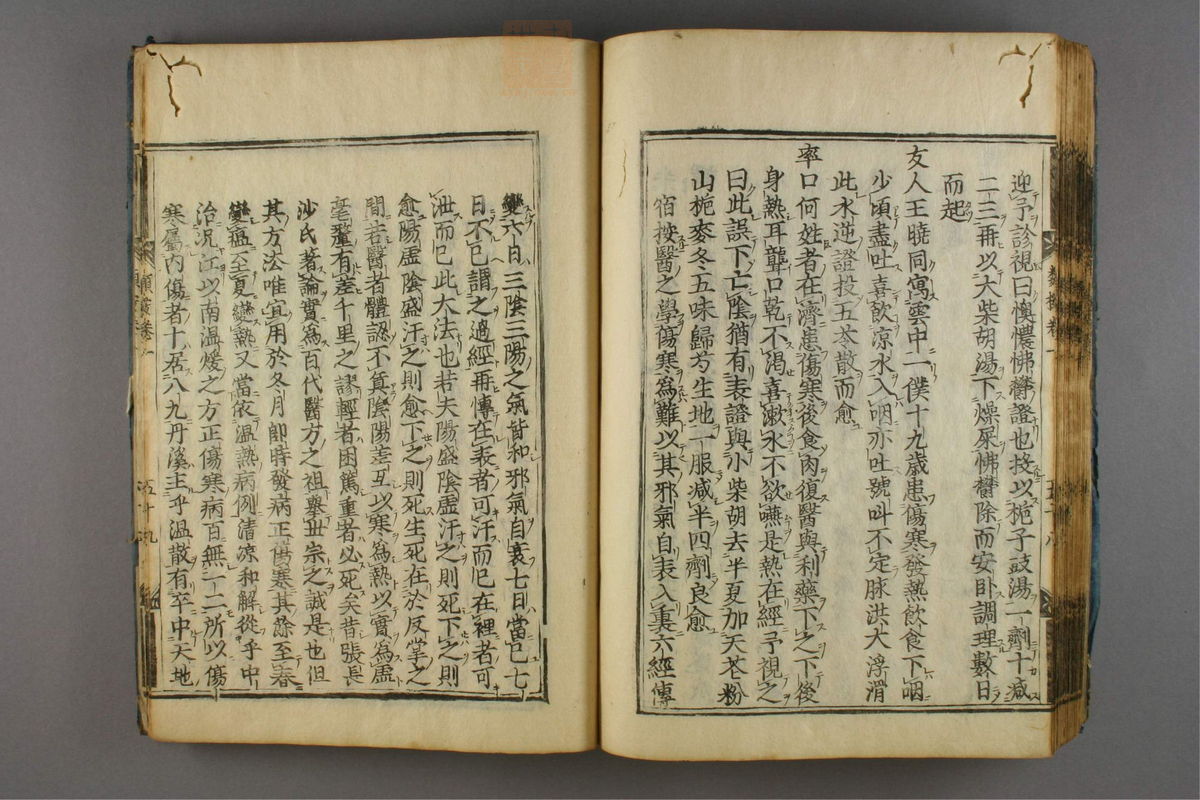 迎予診視曰懊憹怫欝證也投以梔子豉湯一劑十減
二三再以大柴胡湯下燥屎怫欝除而安卧調理數日
而起
友人王曉同寓雲中一僕十九歲患傷寒發熱飲食下咽
少頃盡吐喜飲涼水入咽亦吐號叫不定脉洪大浮滑
此水逆證投五苓散而愈
率口何姓者在濟患傷寒後食肉復醫與利藥下之下後
身熱耳聾口乾不渴喜漱水不欲嚥是熱在經予視之
曰此誤下亡陰猶有表證與小柴胡去半夏加天花粉
山梔麥冬五味歸芍生地一服减半四劑良愈
宿按醫之學傷寒為難以其邪氣自表入裏六經傳
變六日三陰三陽之氣皆和邪氣自衰七日當已七
日不已謂之過經再傳在表者可汗而已在裡者可
泄而已此大法也若夫陽盛陰虛汗之則死下之則
愈陽虛陰盛汗之則愈下之則死生死在於反掌之
間若醫者體認不真陰陽差互以寒為熱以實為虛
毫釐有差千里之謬輕者困篤重者必死矣昔張長
沙氏著論實為百代醫方之祖擧丗宗之誠是也但
其方法唯宜用於冬月即時發病正傷寒其餘至春
變瘟至夏變熱又當依温熱病例清凉和解從乎中
治况江以南温煖之方正傷寒病百無一二所以傷
寒屬内傷者十居八九丹溪主乎温散有卒中天地
五十九